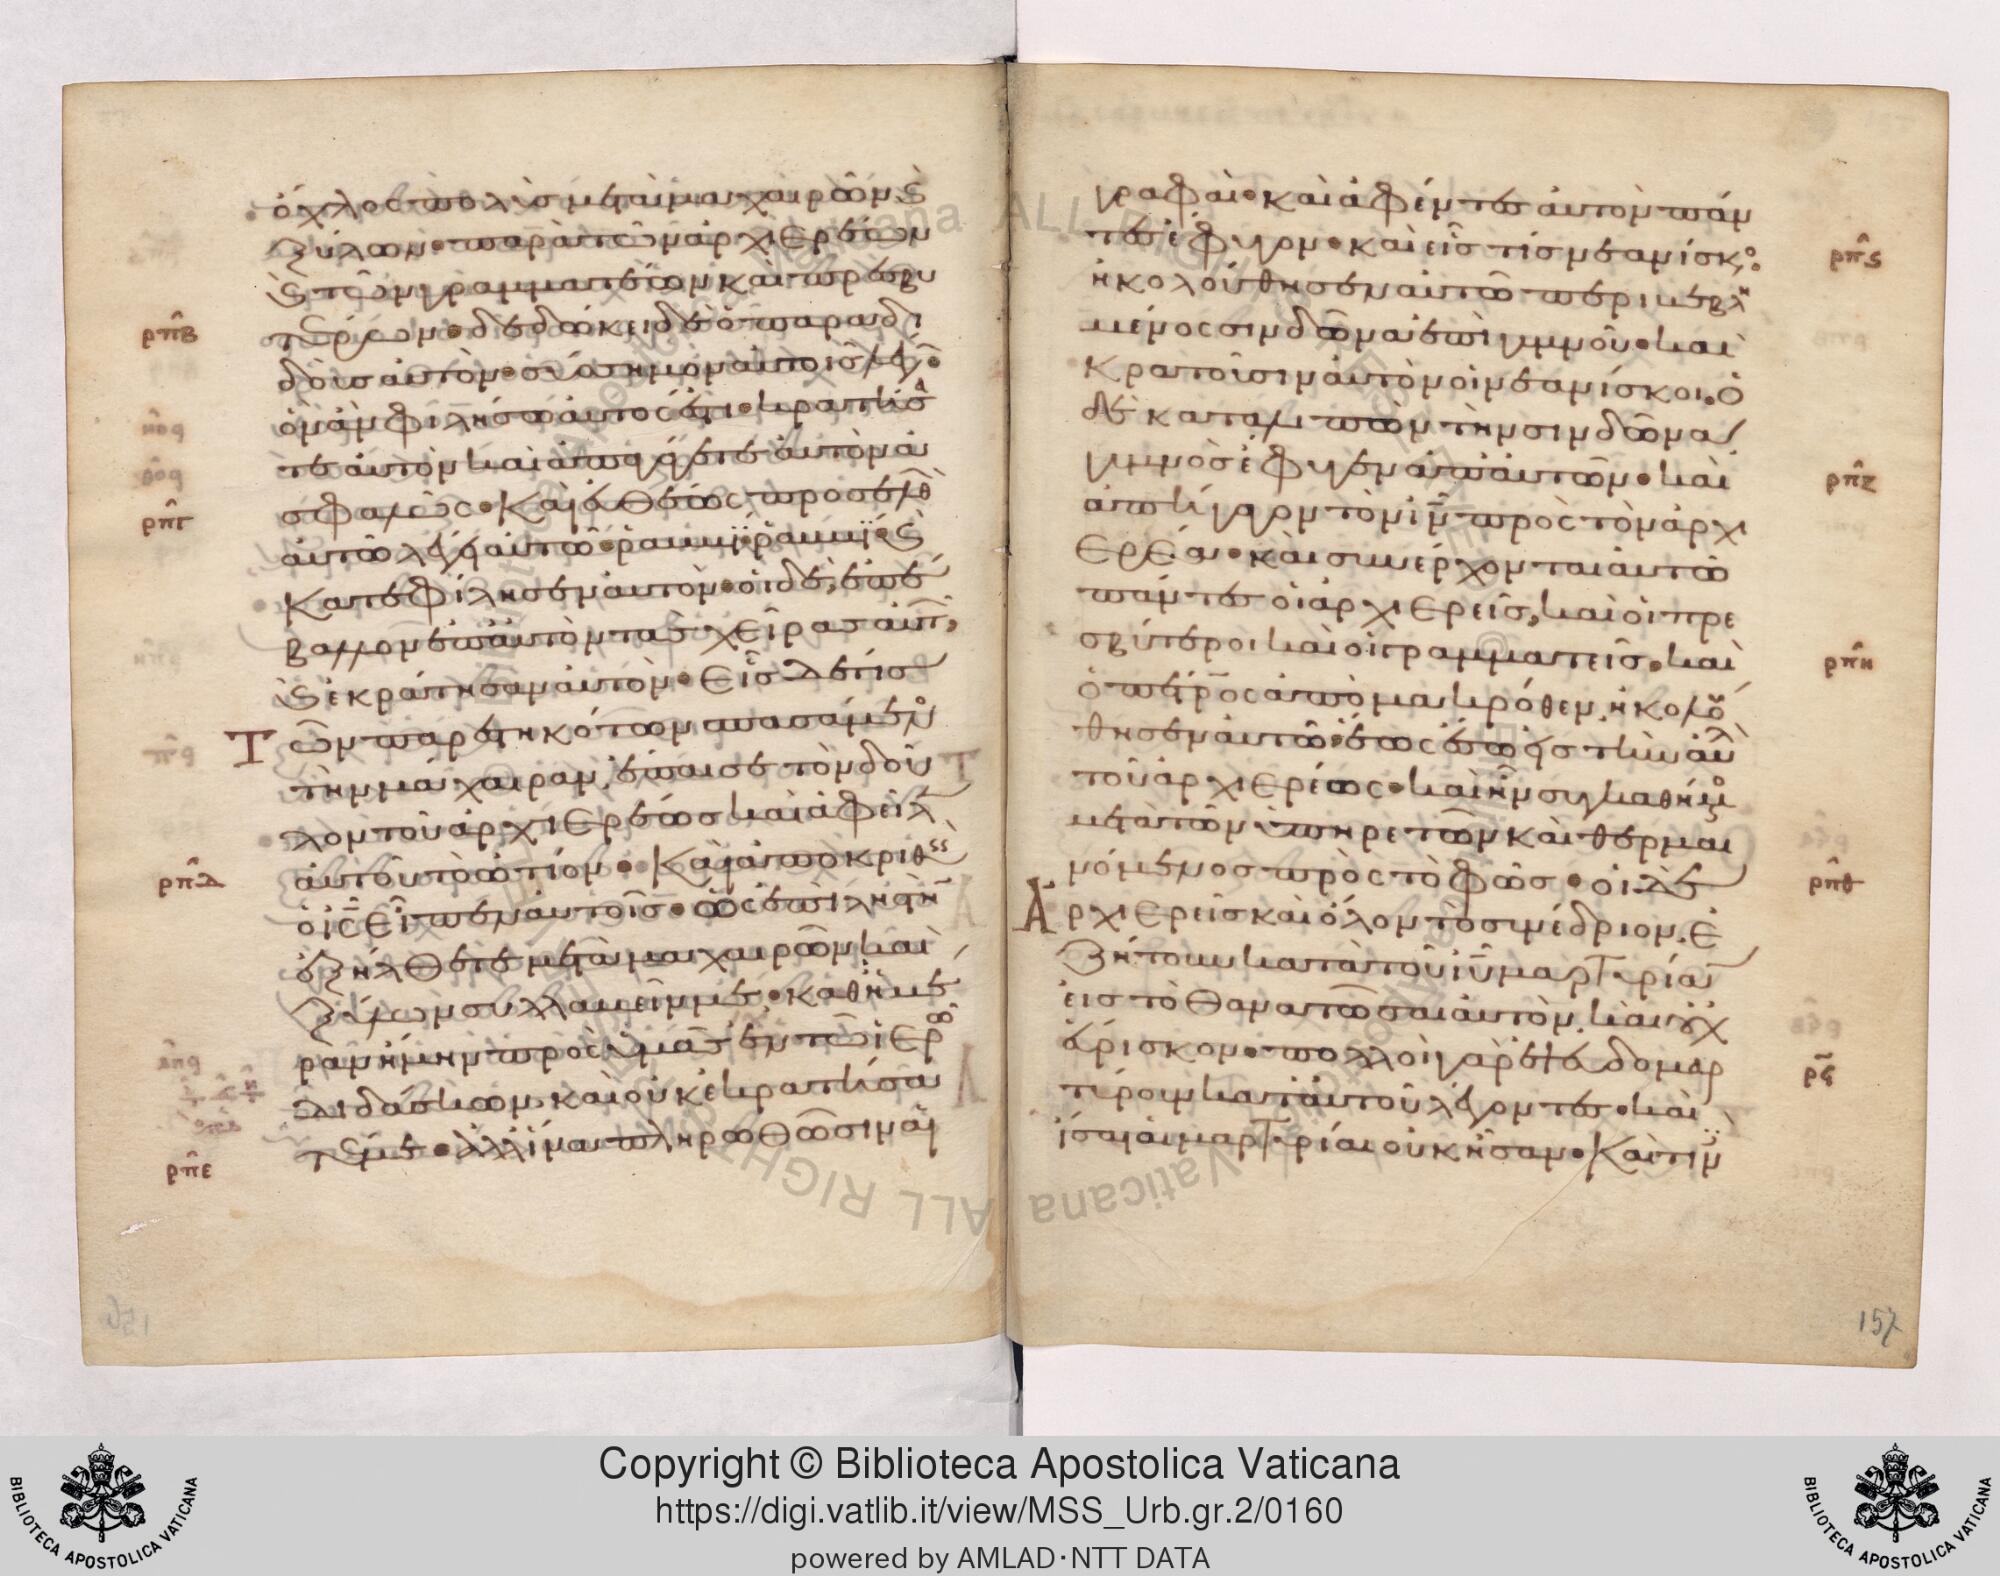 ὄχλος πολὺς μετὰ μαχαιρῶν κ(αὶ)
ξύλων· παρὰ τῶν ἀρχιερέων
κ(αὶ) τῶν γραμματέων καὶ πρεσβυ
ρπβ
τέρων· δεδώκει δὲ ὁ παραδι
δοὺς αὐτὸν σύσσημον αὐτοῖς λέγω(ν)
ὃν ἂν φιλήσω αὐτός ἐστι· κρατήσα
τε αὐτὸν καὶ ἀπαγάγετε αὐτὸν ἀ
ρπγ
σφαλῶς· Καὶ ἐλθὼς προσελθ(ὼν)
αὐτῶ λέγει αὐτῶ· ῥαββί· ῥαββί· κ(αὶ)
κατεφίλησεν αὐτὸν· οἱ δὲ, ἐπέ
βαλλον ἐπ αὐτὸν τὰς χεῖρας αὐτ(ῶν),
κ(αὶ) ἐκράτησαν αὐτὸν· εἷς δέ τις
τῶν παρεστηκότων σπασάμεν(ος)
τὴν μάχαιραν, ἔπαισε τὸν δοῦ
λον τοῦ ἀρχιερέως καὶ ἀφεῖλ(εν)
ρπδ
αὐτοῦ τὸ ὠτίον· Καὶ ἀποκριθεὶς
ὁ ις εἶπεν αὐτοῖς· ὡς ἐπὶ ληστὴν
ἐξήλθετε μετὰ μαχαιρῶν καὶ
ξύλων συλλαβεῖν με· καθ ἡμέ
ραν ἤμην πρὸς ὑμᾶς ἐν τῶ ἱερῶ
διδάσκων, καὶ οὐκ ἐκρατήσα
ρπε
τέ με· ἀλλ ἵνα πληρωθῶσιν αἱ
γραφαί· καὶ ἀφέντες αὐτὸν πάν
ρπς
τες ἔφυγον· καὶ εἷς τίς νεανίσκ(ος)
ἠκολούθησεν αὐτῶ περιβεβλη
μένος σινδόνα ἐπὶ γυμνοῦ· καὶ
κρατοῦσιν αὐτὸν οἱ νεανίσκοι. ὁ
δὲ καταλιπὼν τὴν σινδόνα
ρπζ
γυμνὸς ἔφυγεν ἀπ αὐτῶν· καὶ
ἀπήγαγον τὸν ιν πρὸς τὸν ἀρχι
ερέα· καὶ συνέρχονται αὐτῶ
πάντες οἱ ἀρχιερεῖς, καὶ οἱ πρε
ρπη
σβύτεροι καὶ οἱ γραμματεῖς· καὶ
ὁ πέτρος ἀπὸ μακρόθεν, ἠκολού
θησεν αὐτῶ ἕως ἔσω εἰς τὴν αὐλ(ὴν)
τοῦ ἀρχιερέως· καὶ ἦν συγκαθήμ(ενος)
μετὰ τῶν ὑπηρετῶν καὶ θερμαι
ρπθ
νόμενος πρὸς τὸ φῶς· οἱ δὲ
ἀρχιερεῖς καὶ ὅλον τὸ συνέδριον, ἐ
ζήτουν κατὰ τοῦ ιυ μαρτυρίαν
εἰς τὸ θανατῶσαι αὐτὸν, καὶ οὐχ
ρϟ
εὕρισκον· πολλοὶ γὰρ ἐψευδομαρ
τύρουν κατ αὐτοῦ λέγοντες· καὶ
ἴσαι αἱ μαρτυρίαι οὐκ ἦσαν· Καὶ τιν(ες)
157
Copyright © Biblioteca Apostolica Vaticana
https://digi.vatlib.it/view/MSS_Urb.gr.2/0160
powered by AMLAD·NTT DATA
BIBLIOTECA APOSTOLICA VATICANA
BIBLIOTECA APOSTOLICA VATICANA